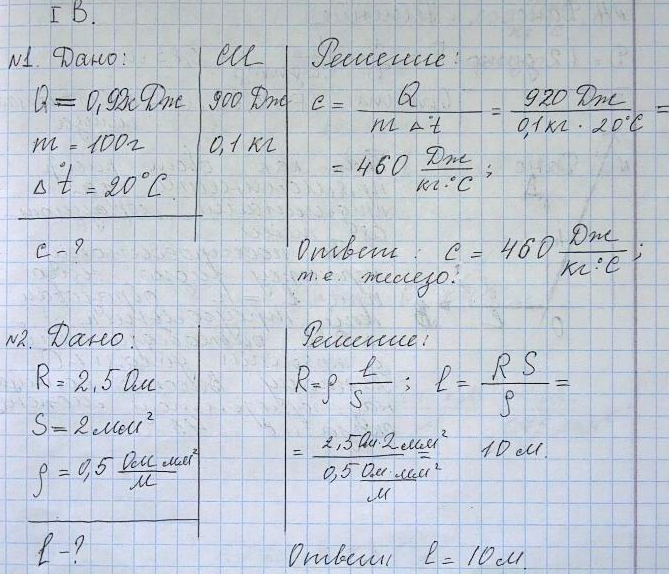 I В.
№1. Дано: СИ Решение:
Q = 0,92кДж 900 Дж c = Q / (m Δt°) = 920 Дж / (0,1кг · 20°C) =
m = 100г 0,1 кг
Δt° = 20°C = 460 Дж / (кг·°C);
c - ? Ответ: c = 460 Дж / (кг·°C);
т.е. железо.
№2. Дано: Решение:
R = 2,5 Ом R = ρ l / S; l = R S / ρ =
S = 2 мм²
ρ = 0,5 Ом мм² / м = 2,5 Ом · 2 мм² / (0,5 Ом · мм² / м) = 10 м.
l - ? Ответ: l = 10 м.